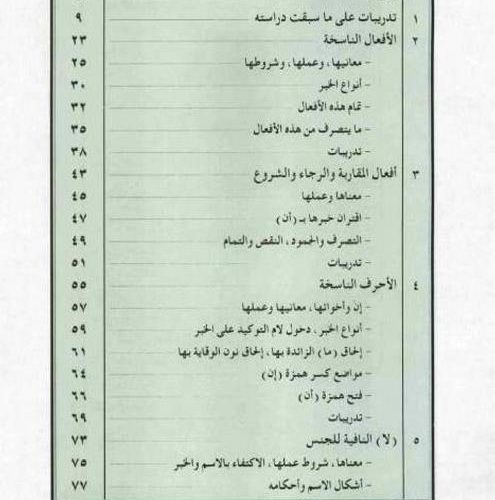 ١ تدريبات على ما سبقت دراسته ٩
٢ الأفعال الناسخة ٢٣
- معانيها، وعملها، وشروطها ٢٥
- أنواع الخبر ٣٠
- تمام هذه الأفعال ٣٢
- ما يتصرف من هذه الأفعال ٣٥
- تدريبات ٣٨
٣ أفعال المقاربة والرجاء والشروع ٤٣
- معناها وعملها ٤٥
- اقتران خبرها بـ (أن) ٤٧
- التصرف والجمود، النقص والتمام ٤٩
- تدريبات ٥١
٤ الأحرف الناسخة ٥٥
- إن وأخواتها، معانيها وعملها ٥٧
- أنواع الخبر، دخول لام التوكيد على الخبر ٥٩
- إلحاق (ما) الزائدة بها، إلحاق نون الوقاية بها ٦١
- مواضع كسر همزة (إن) ٦٤
- فتح همزة (أن) ٦٦
- تدريبات ٦٩
٥ (لا) النافية للجنس ٧٣
- معناها، شروط عملها، الاكتفاء بالاسم والخبر ٧٥
- أشكال الاسم وأحكامه ٧٧